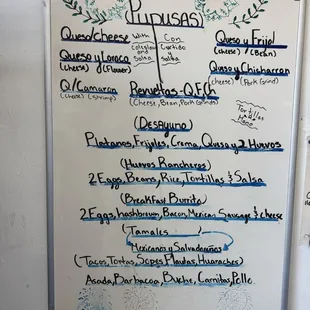 Pupusas
Queso/cheese
With
Coleslaw
and
Salsa
Con
Curtido
y
Salsa
Queso y Frijol
(cheese) (Bean)
Queso y Loroco
(cheese) (Flower)
Queso y Chicharron
(cheese) (Pork Grind)
Q/Camaron
(cheese) (shrimp)
Revueltas-Q.F.Ch
(Cheese, Bean, Pork Grinds)
Tortillas
(Desayuno)
Platanos, Frijoles, Crema, Queso y 2 Huevos
(Huevos Rancheros)
2 Eggs, Beans, Rice, Tortillas & Salsa
(Breakfast Burrito)
2 Eggs, hashbrown, Bacon, Mexican Sausage & cheese
(Tamales)
Mexicanos y Salvadoreños
(Tacos, Tortas, Sopes, Flautas, Huaraches)
Asada, Barbacoa, Buche, Carnitas, Pollo.